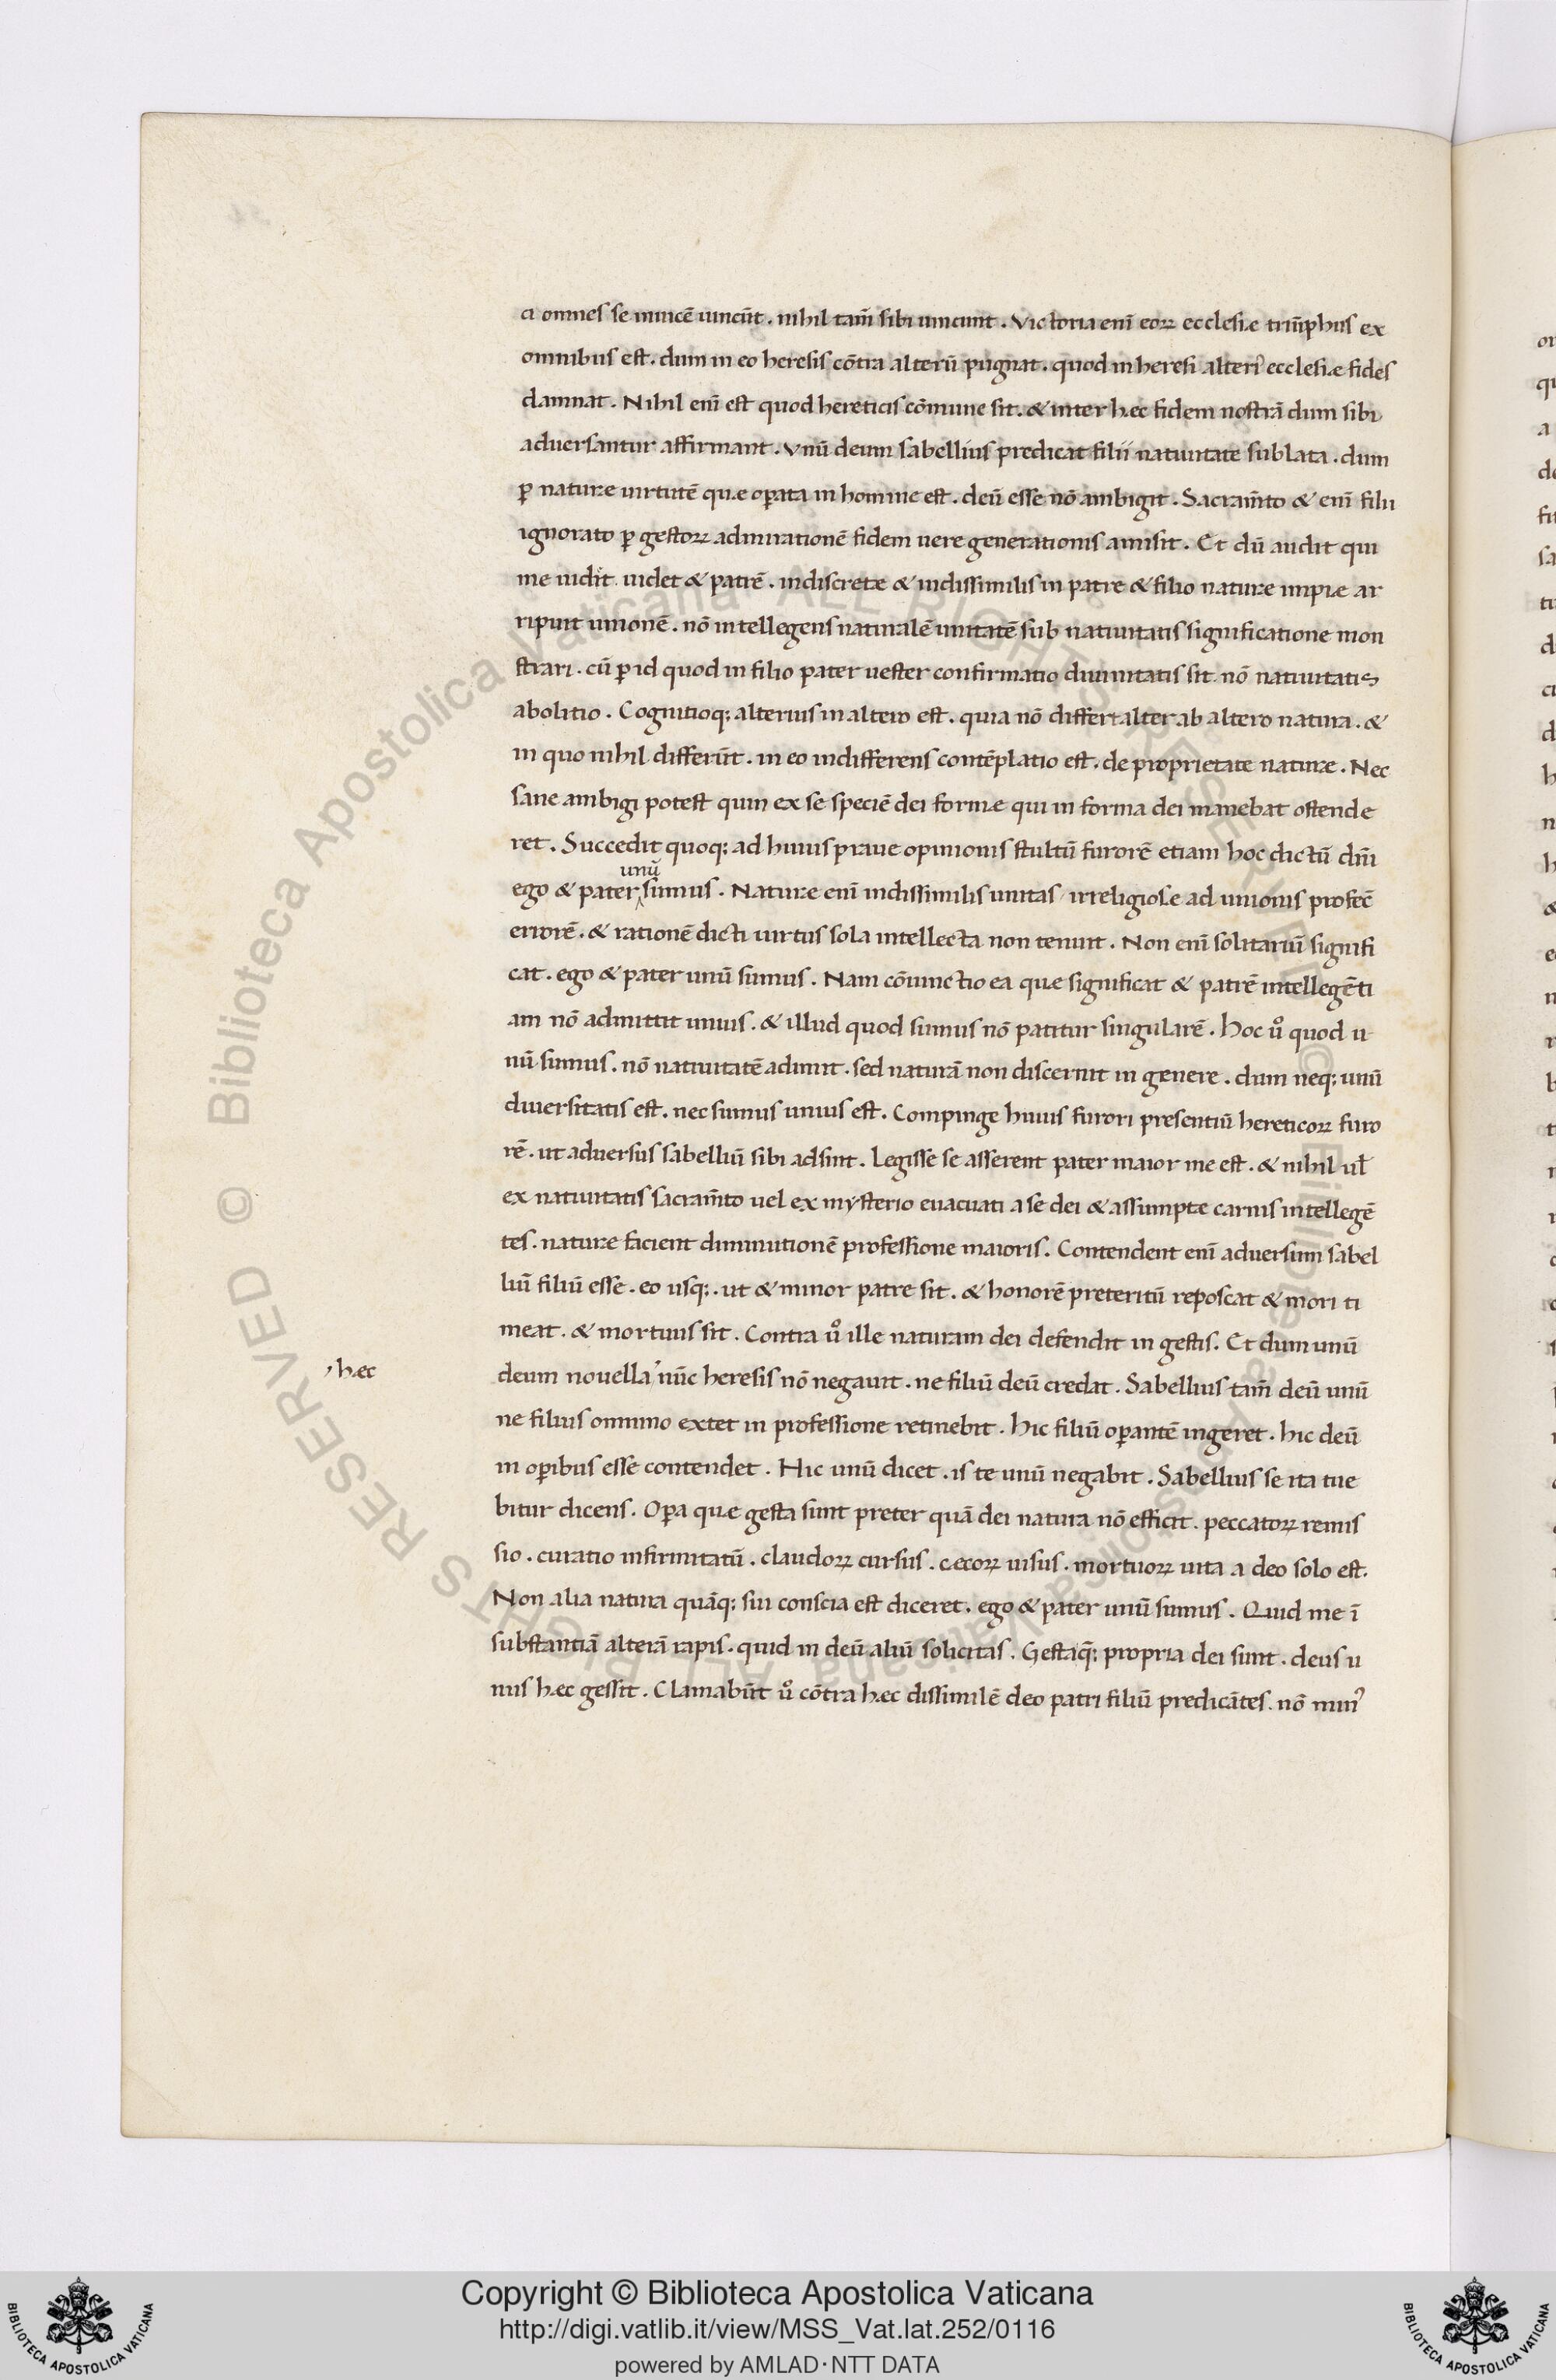 ci omnes se inuicē uincūt. nihil tam̄ sibi uincunt. Victoria eni᷑ eoꝝ ecclesiæ triūphus ex
omnibus est. dum in eo heresis cōtra alterū pugnat. quod in heresi alteri᷒ ecclesiæ fides
damnat. Nihil enī est quod hereticis cōmune sit. & inter hæc fidem nostrā dum sibi
aduersantur affirmant. Vnū deum sabellius predicat filii natiuitate sublata. dum
ꝑ naturæ uirtutē quæ oꝑata in homine est. deū esse nō ambigit. Sacram̄to & enī filii
ignorato ꝑ gestoꝝ admirationē fidem uere generationis amisit. Et dū audit qui
me uidit. uidet & patrē. indiscretæ & indissimilis in patre & filio naturæ impiæ ar
ripuit unionē. nō intellegens naturalē unitatē sub natiuitatis significatione mon
strari. cū ꝑ id quod in filio pater uester confirmatio diuinitatis sit. nō natiuitatis
abolitio. Cognitioq; alterius in altero est. quia nō differt alter ab altero natura. &
in quo nihil differūt. in eo indifferens contēplatio est. de proprietate naturæ. Nec
sane ambigi potest quin ex se speciē dei formæ qui in forma dei manebat ostende
ret. Succedit quoq; ad huius praue opinionis stultū furorē etiam hoc dictū dn̄i
unū
ego & pater sumus. Naturæ enī indissimilis unitas irreligiose ad unionis profec̄
errorē. & rationē dicti uirtus sola intellecta non tenuit. Non enī solitariū signifi
cat. ego & pater unū sumus. Nam cōiunctio ea quæ significat & patrē intellegēti
am nō admittit unius. & illud quod sumus nō patitur singularē. Hoc uͦ quod u
nū sumus. nō natiuitatē adimit. sed naturā non discernit in genere. dum neq; unū
diuersitatis est. nec sumus unius est. Compinge huius furori presentiū hereticoꝝ furo
rē. ut aduersus sabelliū sibi adsint. Legisse se asserent pater maior me est. & nihil ul̄
ex natiuitatis sacram̄to uel ex mysterio euacuati a se dei & assumptæ carnis intellegē
tes. naturæ facient diminutionē professione maioris. Contendent enī aduersum sabel
liū filiū esse. eo usq;. ut & minor patre sit. & honorē preteritū reposcat & mori ti
meat. & mortuus sit. Contra uͦ ille naturam dei defendit in gestis. Et dum unū
, hæc
deum nouella ’ nūc heresis nō negauit. ne filiū deū credat. Sabellius tam̄ deū unū
ne filius omnino extet in professione retinebit. Hic filiū oꝑantē ingeret. hic deū
in oꝑibus esse contendet. Hic unū dicet. is te unū negabit. Sabellius se ita tue
bitur dicens. Oꝑa quæ gesta sunt preter quā dei natura nō efficit. peccatoꝝ remis
sio. curatio infirmitatū. claudoꝝ cursus. cæcoꝝ uisus. mortuoꝝ uita a deo solo est.
Non alia natura quāq; sui conscia est diceret. ego & pater unū sumus. Quid me ī
substantiā alterā rapis. quid in deū aliū solicitas. Gestaq̄; propria dei sunt. deus u
nus hæc gessit. Clamabūt uͦ cōtra hæc dissimilē deo patri filiū predicātes. nō min᷒
Copyright © Biblioteca Apostolica Vaticana
http://digi.vatlib.it/view/MSS_Vat.lat.252/0116
powered by AMLAD·NTT DATA